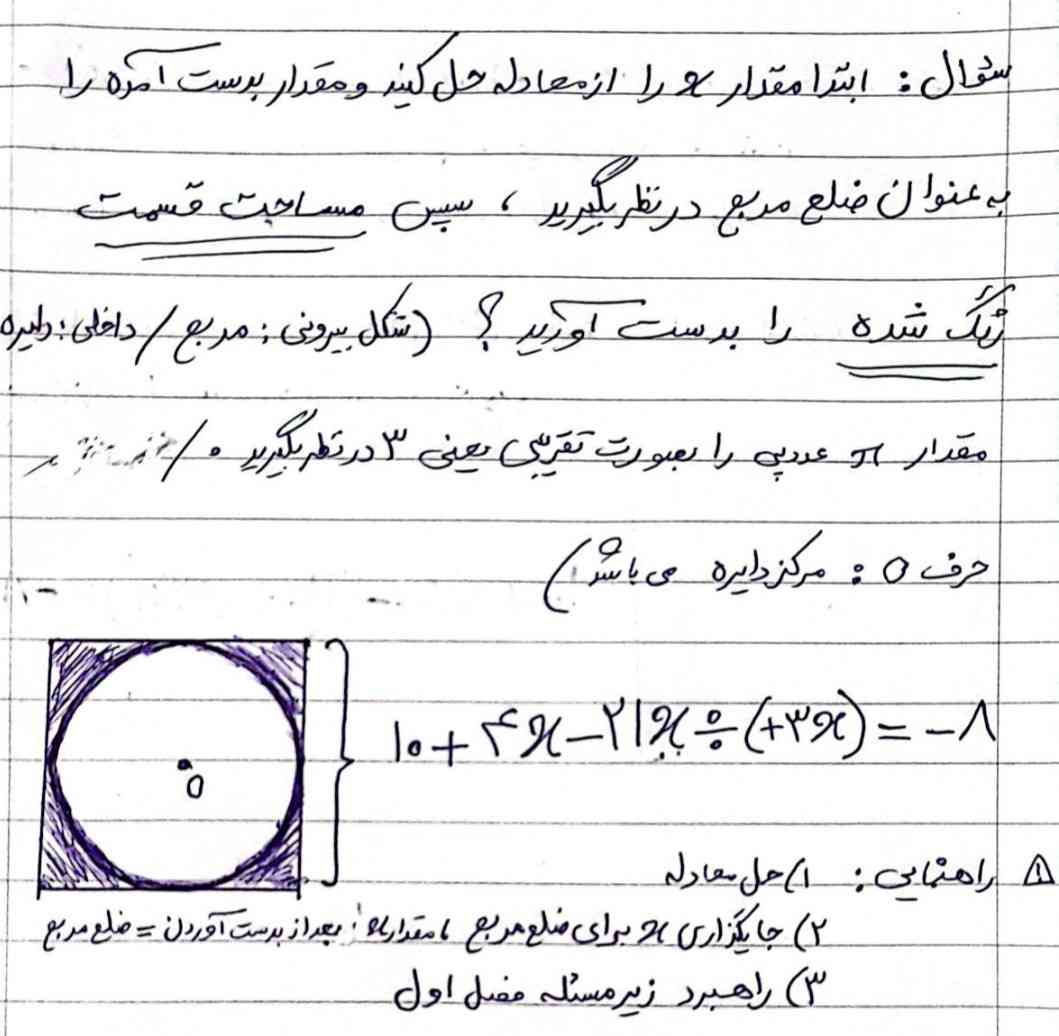 سئوال : ابتدا مقدار x را از معادله حل کنید و مقدار بدست آمده را
به عنوان ضلع مربع در نظر بگیرید ، سپس مساحت قسمت
رنگ شده را بدست آورید ؟ (شکل بیرونی : مربع / داخلی : دایره
مقدار π عدد پی را بصورت تقریبی یعنی ۳ در نظر بگیرید . /
حرف O : مرکز دایره می باشد)
۱۰ + ۴x - ۲۱x ÷ (+۳x) = -۸
O
راهنمایی : ۱) حل معادله
۲) جایگزاری x برای ضلع مربع بعد از بدست آوردن = ضلع مربع
۳) راهبرد زیر مسئله فصل اول